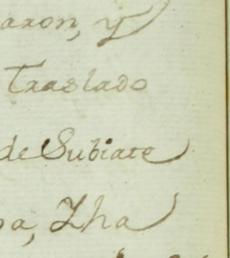 axon, y
Traslado
de Subiate
pa, Zha